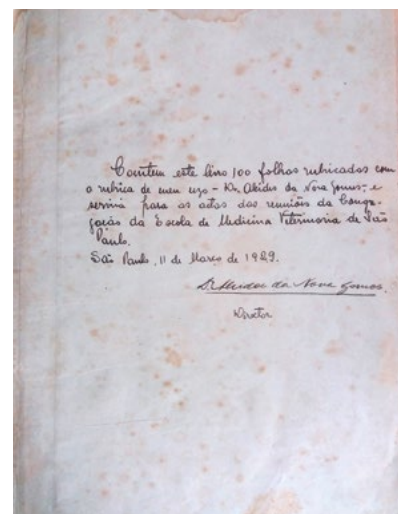 Contem este livro 100 folhas rubricadas com
a rubrica de meu uzo - Dr. Alcides da Nova Gomes, e
servirá para as actas das reuniões da Congre-
gação da Escola de Medicina Veterinaria de São
Paulo.
São Paulo, 11 de Março de 1929.
Dr. Alcides da Nova Gomes.
Director